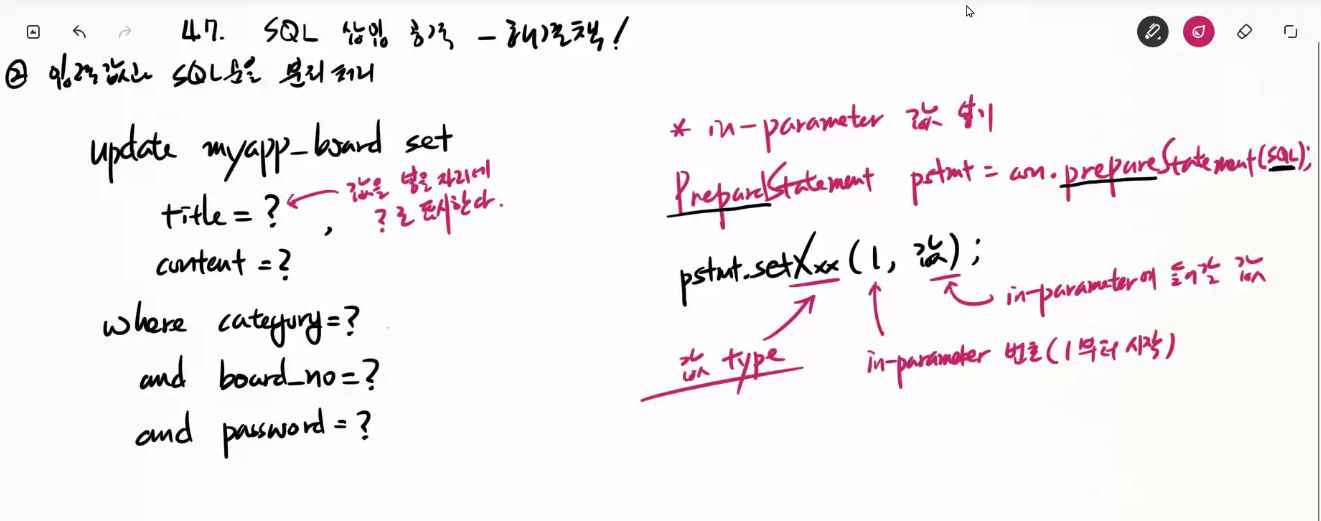 47. SQL 삽입 공격 - 해결책!
② 입력값과 SQL문을 분리 처리
update myapp_board set
title = ? ,
값을 넣을 자리에
? 로 표시한다.
content = ?
where category=?
and board_no=?
and password = ?
* in-parameter 값 넣기
PreparedStatement pstmt = con.prepareStatement(SQL);
pstmt.setXxx (1, 값);
in-parameter에 들어갈 값
값 type
in-parameter 번호(1부터 시작)